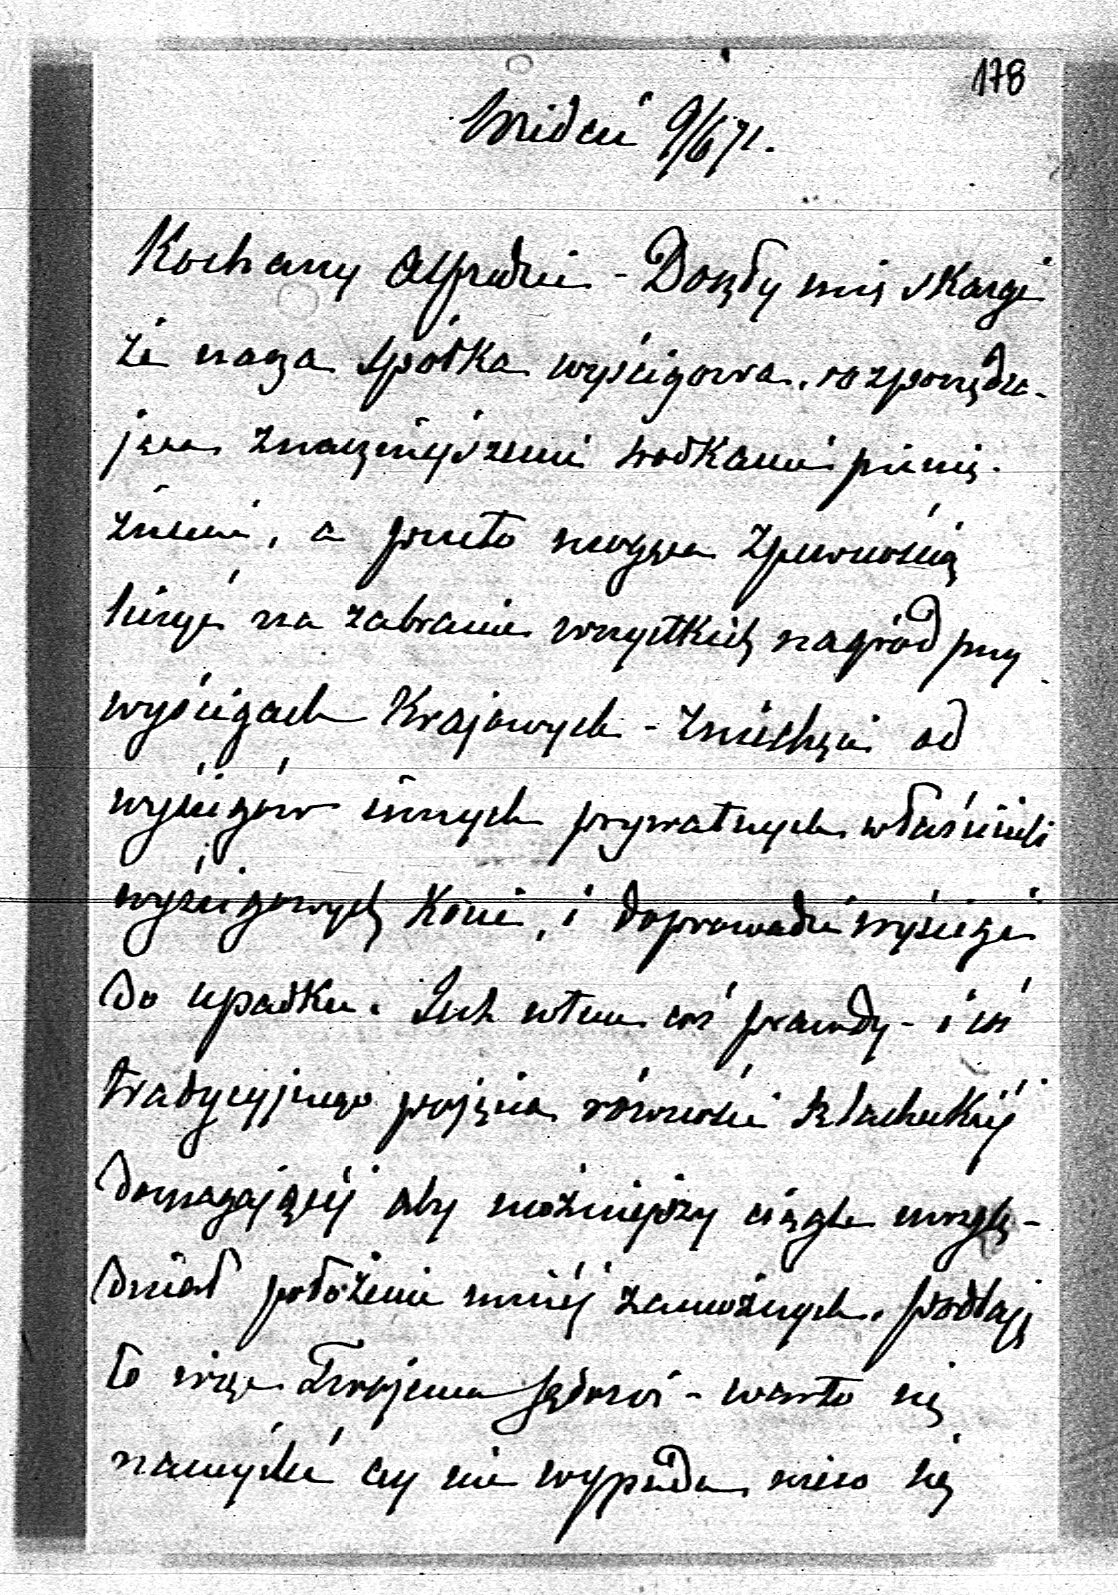 178
Wiedeń 9/6 71.
Kochany Alfredzie - Doszły mię skargi
że nasza spółka wyścigowa, rozporządza-
jąca znaczniejszemi środkami pienię-
żnemi, a przeto mogąca z pewnością
liczyć na zabranie wszystkich nagród przy
wyścigach Krajowych - zniechęci od
wyścigów innych prywatnych właścicieli
wyścigowych Koni, i doprowadzi wyścigi
do upadku. Jest w tem coś prawdy - i coś
tradycyjnego pojęcia równości szlacheckiéj
domagającéj aby możniejszy ciągle uwzglę-
dniał położenie mniéj zamożnych. Poddaję
to więc Twojemu sądowi - warto się
namyśleć czy nie wypada nieco się